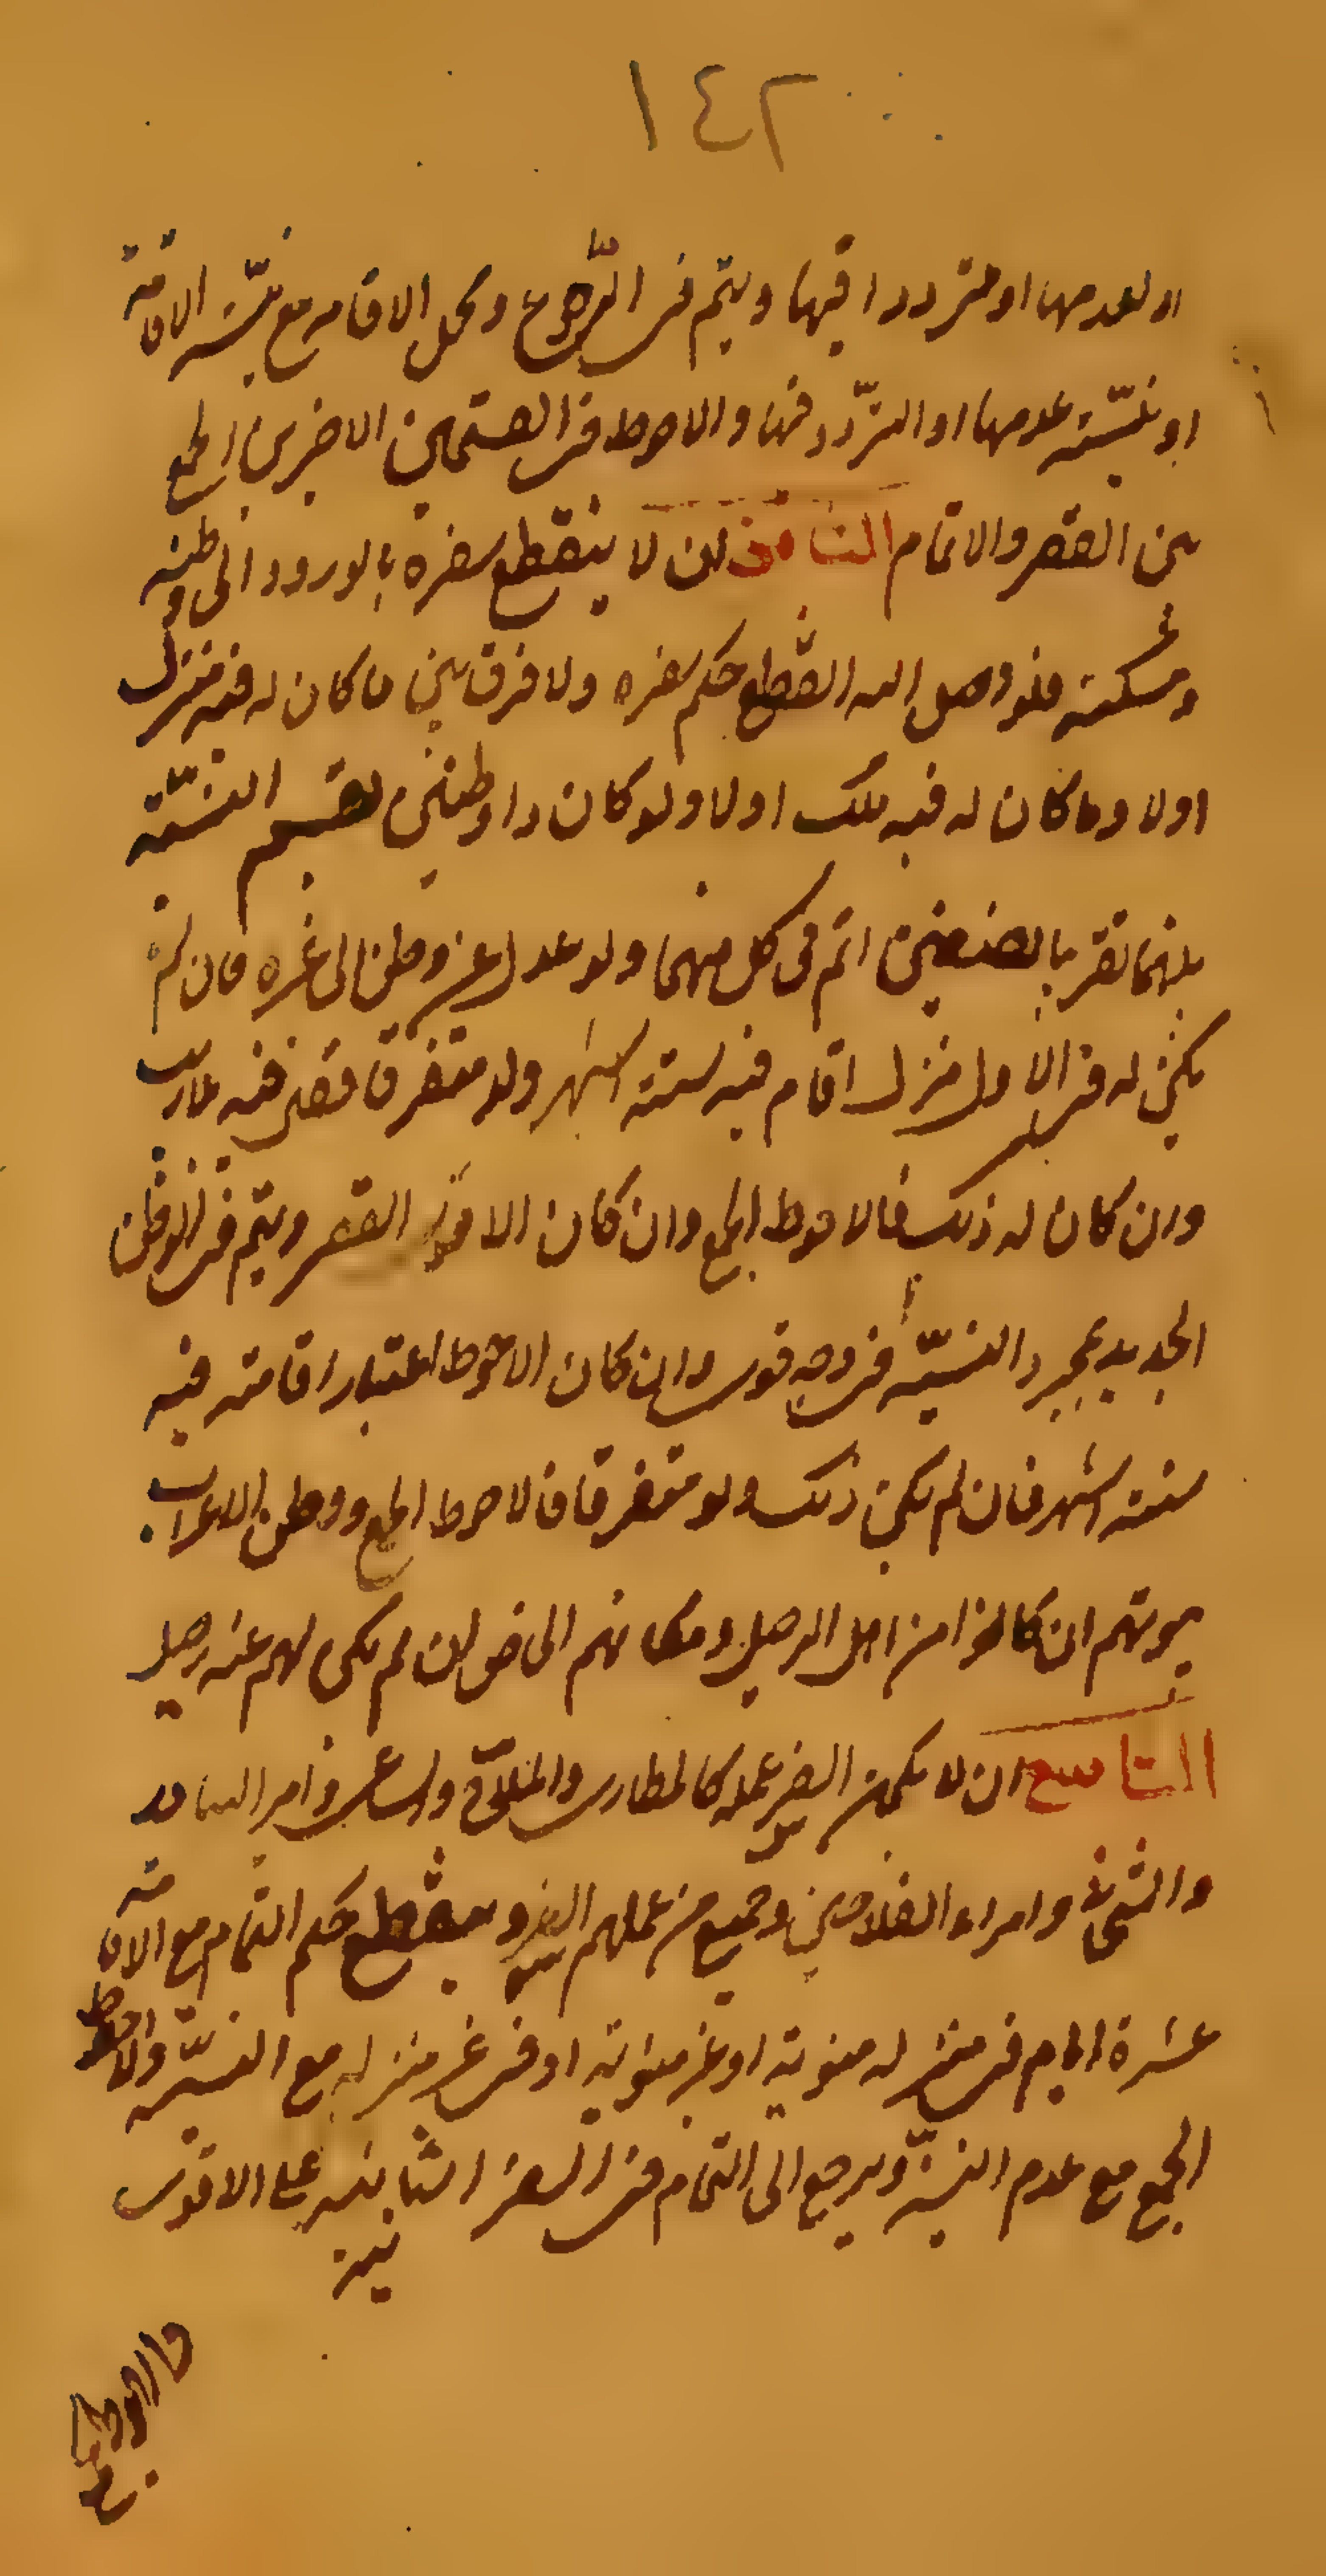 ١٤٢
او لعدمها او متردداً فيها ويتم فى الرّجوع ومحل الاقامه مع نيّته الاقامة
او بنيّته عدمها او التردّد فيها والاحوط فى القسمين الاخيرين الجمع
بين القصر والاتمام الثامن ان لا ينقطع سفره بالورود الى وطنه
ومسكنه فلو وصل اليه انقطع حكم سفره ولا فرق بين ما كان له فيه منزل
اولا وما كان له فيه ملك اولا ولو كان ذا وطنين بقسم السّنة
بينهما تقريبا بصنفين اتم فى كل منهما ولو عدل عن وطن الى غيره فان لم
يكن له فى الاول منزل اقام فيه ستة اشهر ولو متفرقا قصر فيه بلا ريب
وان كان له ذلك فالاحوط الجمع وان كان الاقوى القصر ويتم فى الوطن
الجديد بمجرد النيّة فى وجه قوى وان كان الاحوط اعتبار اقامته فيه
ستة اشهر فان لم يكن ذلك ولو متفرقا فالاحوط الجمع ووطن الاعراب
بيوتهم ان كانوا من اهل الرحيل ومكانهم الخاص ان لم يكن لهم عنه رحيل
التاسع ان لا يكون السفر عمله كالمكارى والملاّح والساعى وامير البيادر
والتجّار وامراء الفلاحين وجميع من عملهم السفر وينقطع حكم التمام مع الاقامة
عشرة ايام فى منزله منوية او غير منوية او فى غير منزله مع النيّة والاحوط
الجمع مع عدم النيّة ويرجع الى التمام فى السفر الثانية على الاقوى
نية
والاحوط